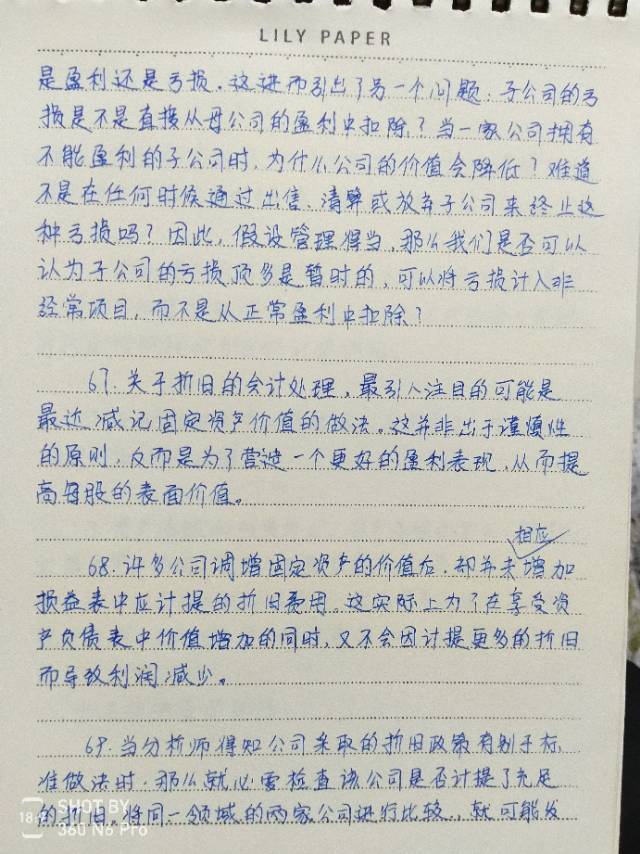 LILY PAPER
是盈利还是亏损。这进而引出了另一个问题：子公司的亏
损是不是直接从母公司的盈利中扣除？当一家公司拥有
不能盈利的子公司时，为什么公司的价值会降低？难道
不是在任何时候通过出售、清算或放弃子公司来终止这
种亏损吗？因此，假设管理得当，那么我们是否可以
认为子公司的亏损顶多是暂时的，可以将亏损计入非
经常项目，而不是从正常盈利中扣除？
67. 关于折旧的会计处理，最引人注目的可能是
最近减记固定资产价值的做法。这并非出于谨慎性
的原则，反而是为了营造一个更好的盈利表现，从而提
高每股的表面价值。
相应
68. 许多公司调增固定资产的价值后，却并未增加
损益表中应计提的折旧费用。这实际上为了在享受资
产负债表中价值增加的同时，又不会因计提更多的折旧
而导致利润减少。
69. 当分析师得知公司采取的折旧政策有别于标
准做法时，那么就必要检查该公司是否计提了充足
的折旧。将同一领域的两家公司进行比较，就可能发
SHOT BY
360 N6 Pro